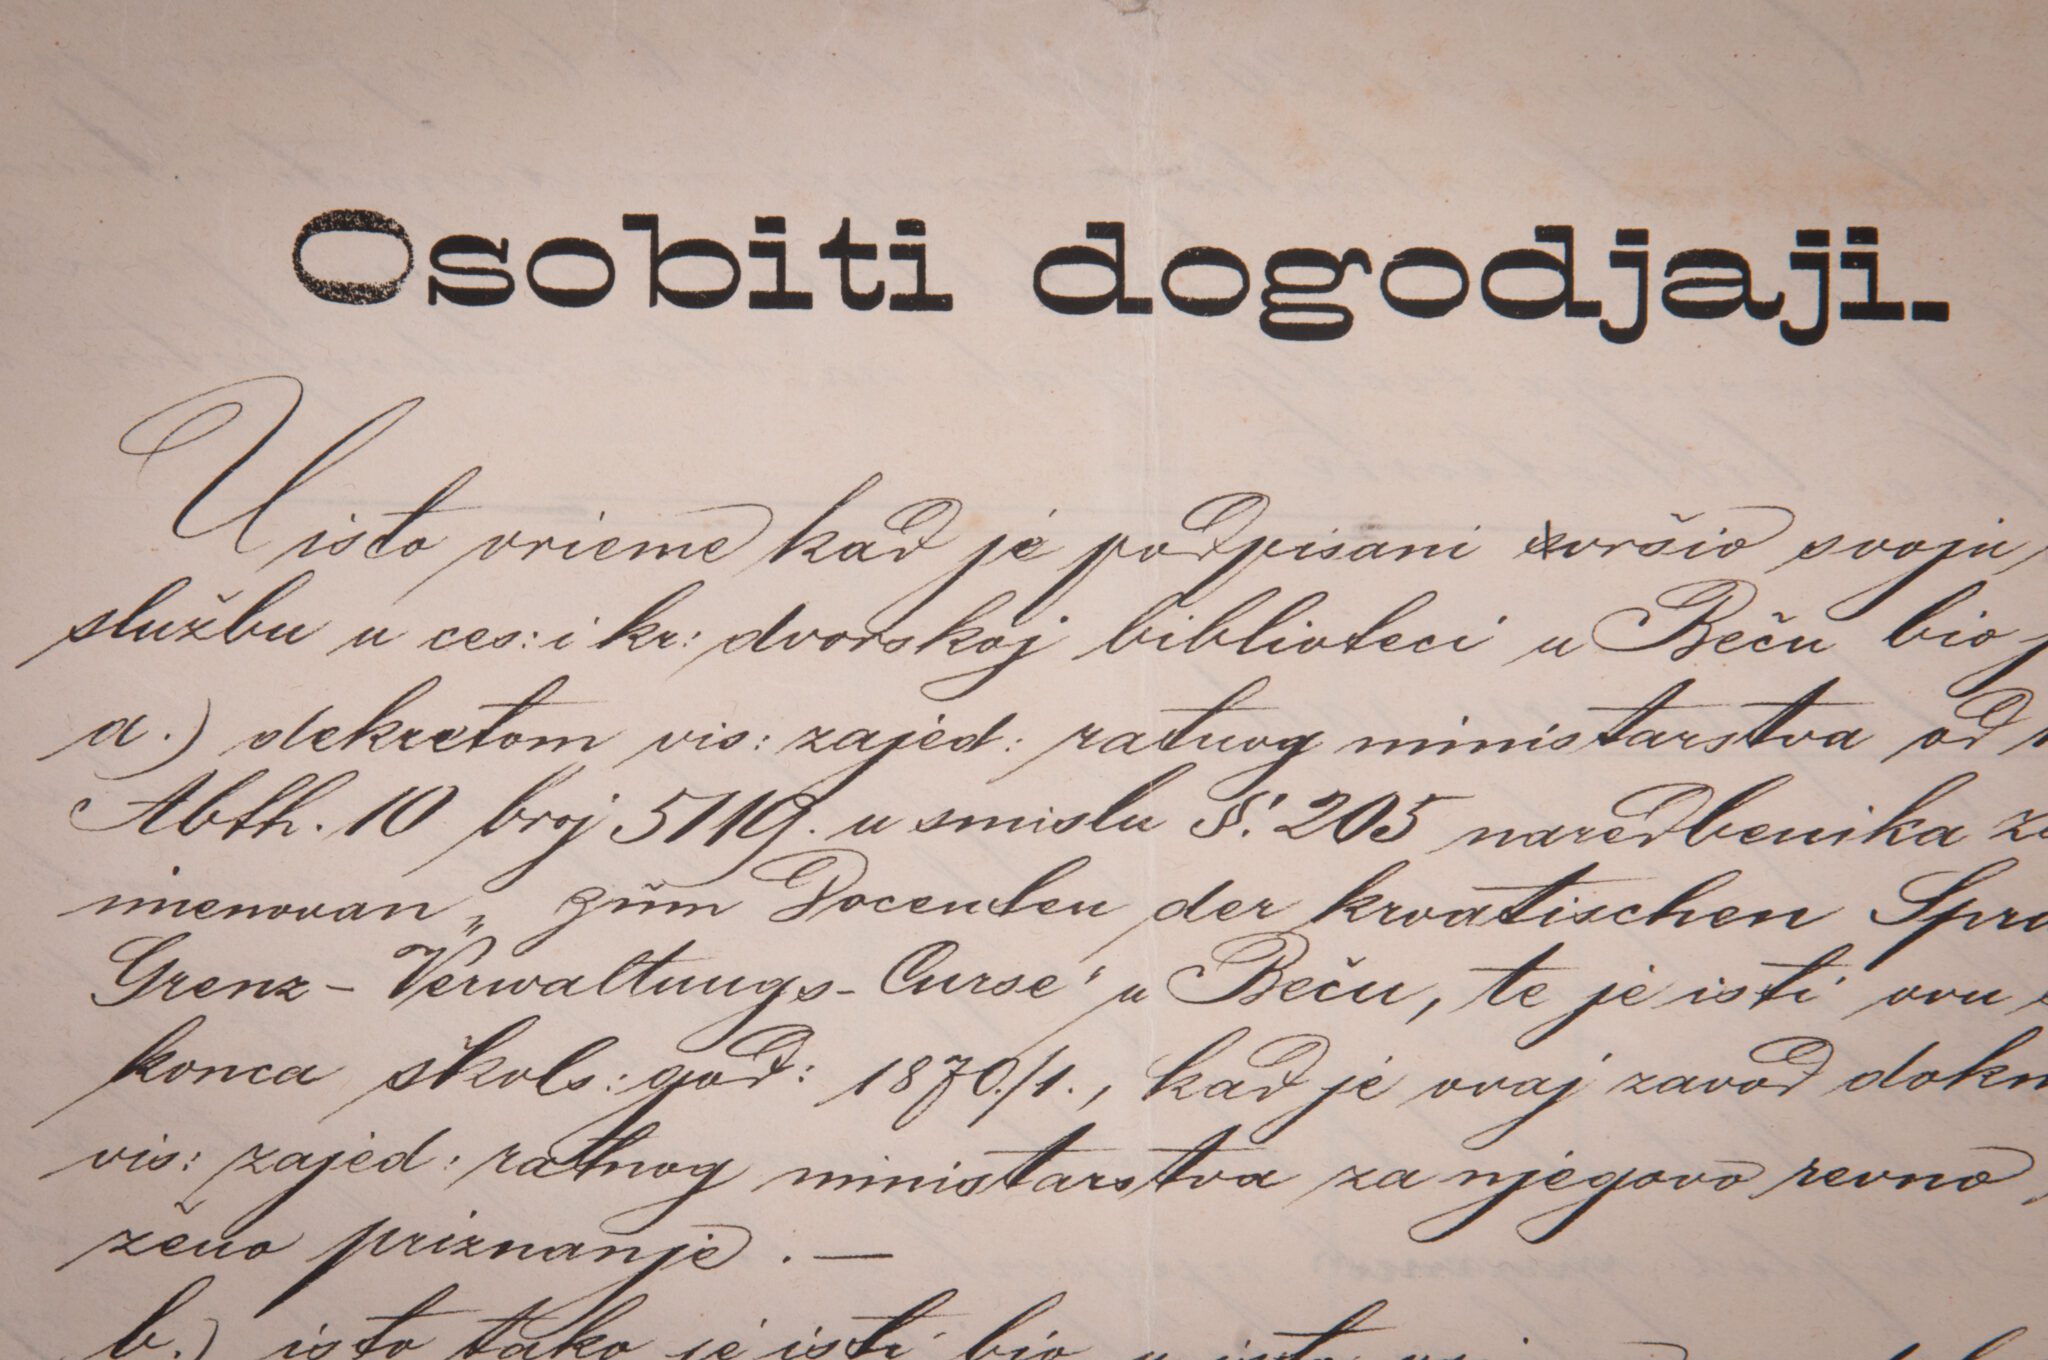 Osobiti dogodjaji.
U isto vrieme kad je podpisani vršio svoju
službu u ces: i kr: dvorskoj biblioteci u Beču bio
a.) dekretom vis: zajed: ratnog ministarstva od
Abth. 10 broj 5119. u smislu §: 205 naredbenika
imenovan „ zum Docenten der krvatischen
Grenz-Verwaltungs-Curse" u Beču, te je isti ovu
konca škols: god: 1870./1., kad je ovaj zavod
vis: zajed: ratnog ministarstva za njegovo revno
ženo priznanje. —
b.) isto tako je isti bio u isto